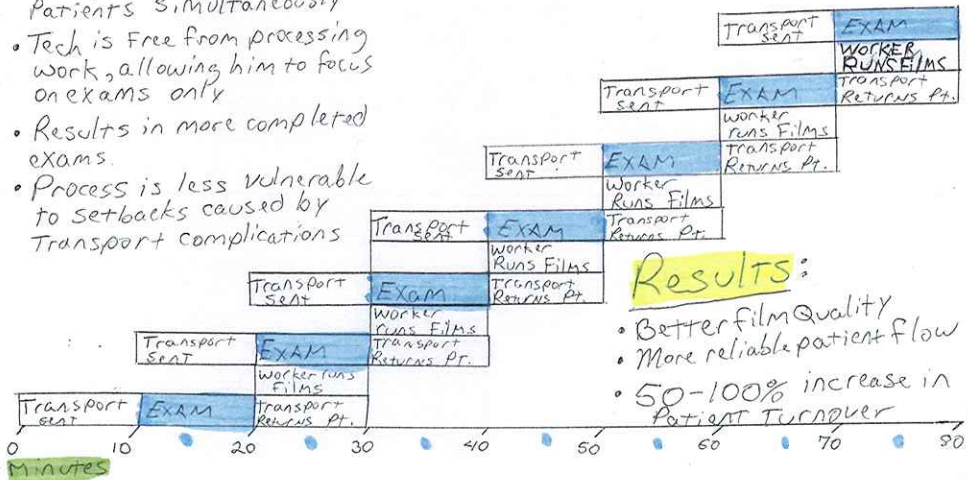 Patients Simultaneously
• Tech is Free from processing
work, allowing him to focus
on exams only
• Results in more completed
exams.
• Process is less vulnerable
to setbacks caused by
Transport complications
Transport
sent
EXAM
WORKER
RUNS Films
Transport
sent
EXAM
Transport
Returns Pt.
worker
runs Films
Transport
sent
EXAM
Transport
Returns Pt.
Worker
Runs Films
Transport
sent
EXAM
Transport
Returns Pt.
Worker
Runs Films
Transport
sent
Exam
Transport
Returns Pt.
Worker
runs Films
Transport
sent
EXAM
Transport
Returns Pt.
worker runs
Films
Transport
sent
EXAM
Transport
Returns Pt.
Results:
• Better film Quality
• More reliable patient flow
• 50-100% increase in
Patient Turnover
0 10 20 30 40 50 60 70 80
Minutes